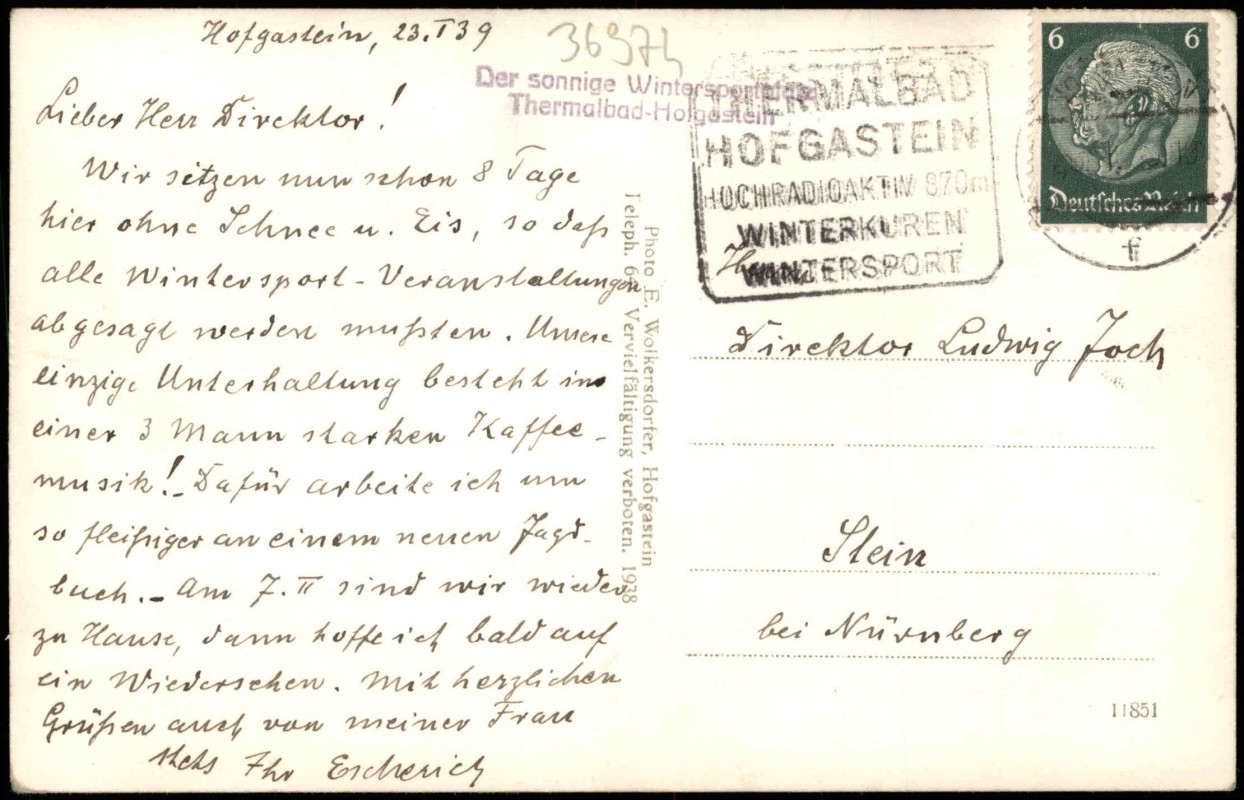 Hofgastein, 23.I 39
36974
Der sonnige Wintersportplatz
Thermalbad-Hofgastein
THERMALBAD
HOFGASTEIN
HOCHRADIOAKTIV 870m
WINTERKUREN
WINTERSPORT
6 6
Deutsches Reich
Lieber Herr Direktor!
Wir sitzen nun schon 8 Tage
hier ohne Schnee u. Eis, so daß
alle Wintersport-Veranstaltungen
abgesagt werden mußten. Unsere
einzige Unterhaltung besteht in
einer 3 Mann starken Kaffee-
musik!- Dafür arbeite ich um
so fleißiger an einem neuen Jagd-
buch.- Am 7.II sind wir wieder
zu Hause, dann hoffe ich bald auf
ein Wiedersehen. Mit herzlichen
Grüßen auch von meiner Frau
stets Ihr Escherich
Photo E. Wolkersdorfer, Hofgastein
Teleph. 64 Vervielfältigung verboten. 1938
Herrn
Direktor Ludwig Joch
Stein
bei Nürnberg
11851